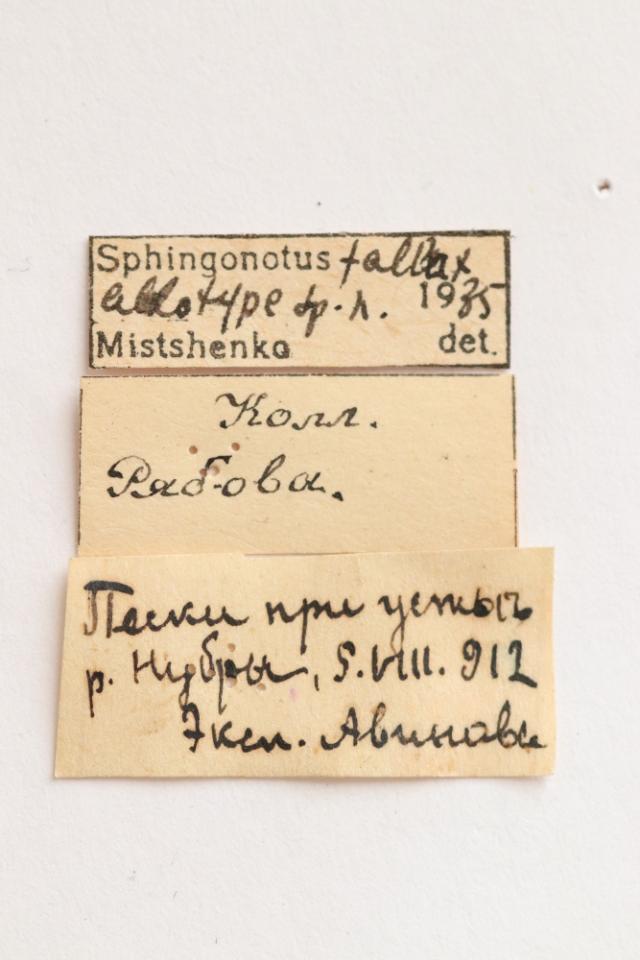 Sphingonotus fallax
allotype sp. n. 1935
Mistshenko det.
Колл.
Рябова.
Пески при устьѣ
р. Нубры, 5.VIII.912
Эксп. Авинова